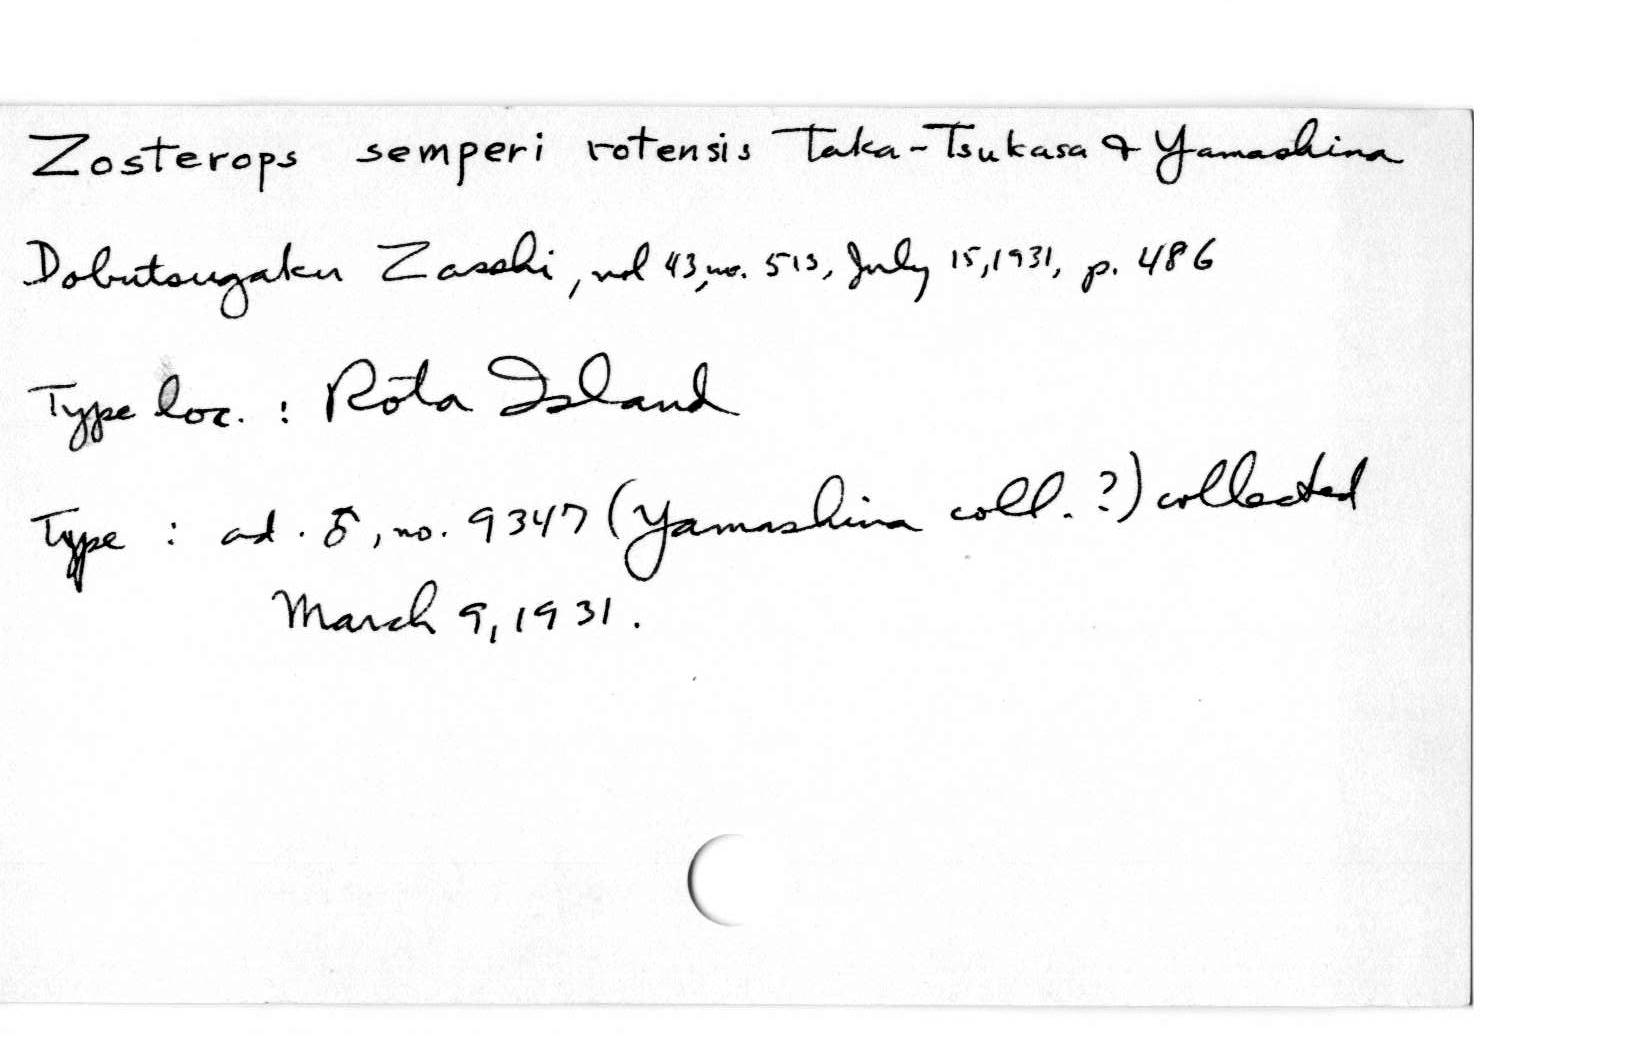 Zosterops semperi rotensis Taka-Tsukasa & Yamashina
Dobutsugaku Zasshi, vol 43, no. 513, July 15, 1931, p. 486
Type loc. : Rota Island
Type : ad. ♂, no. 9347 (Yamashina coll. ?) collected
March 9, 1931.